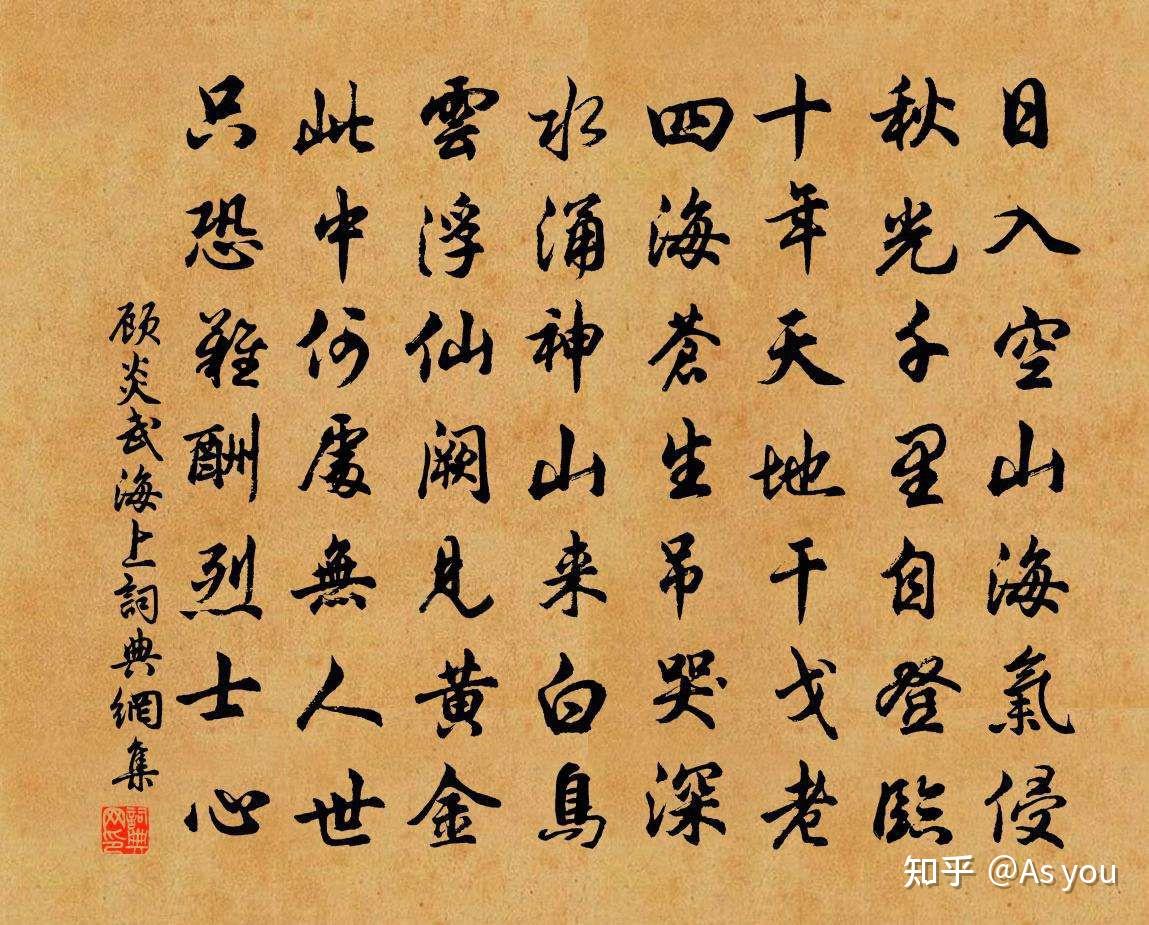 日入空山海氣侵
秋光千里自登臨
十年天地干戈老
四海蒼生吊哭深
水涌神山来白鳥
雲浮仙闕見黃金
此中何處無人世
只恐難酬烈士心
顾炎武海上詞典網集
詞典網印
知乎 @As you